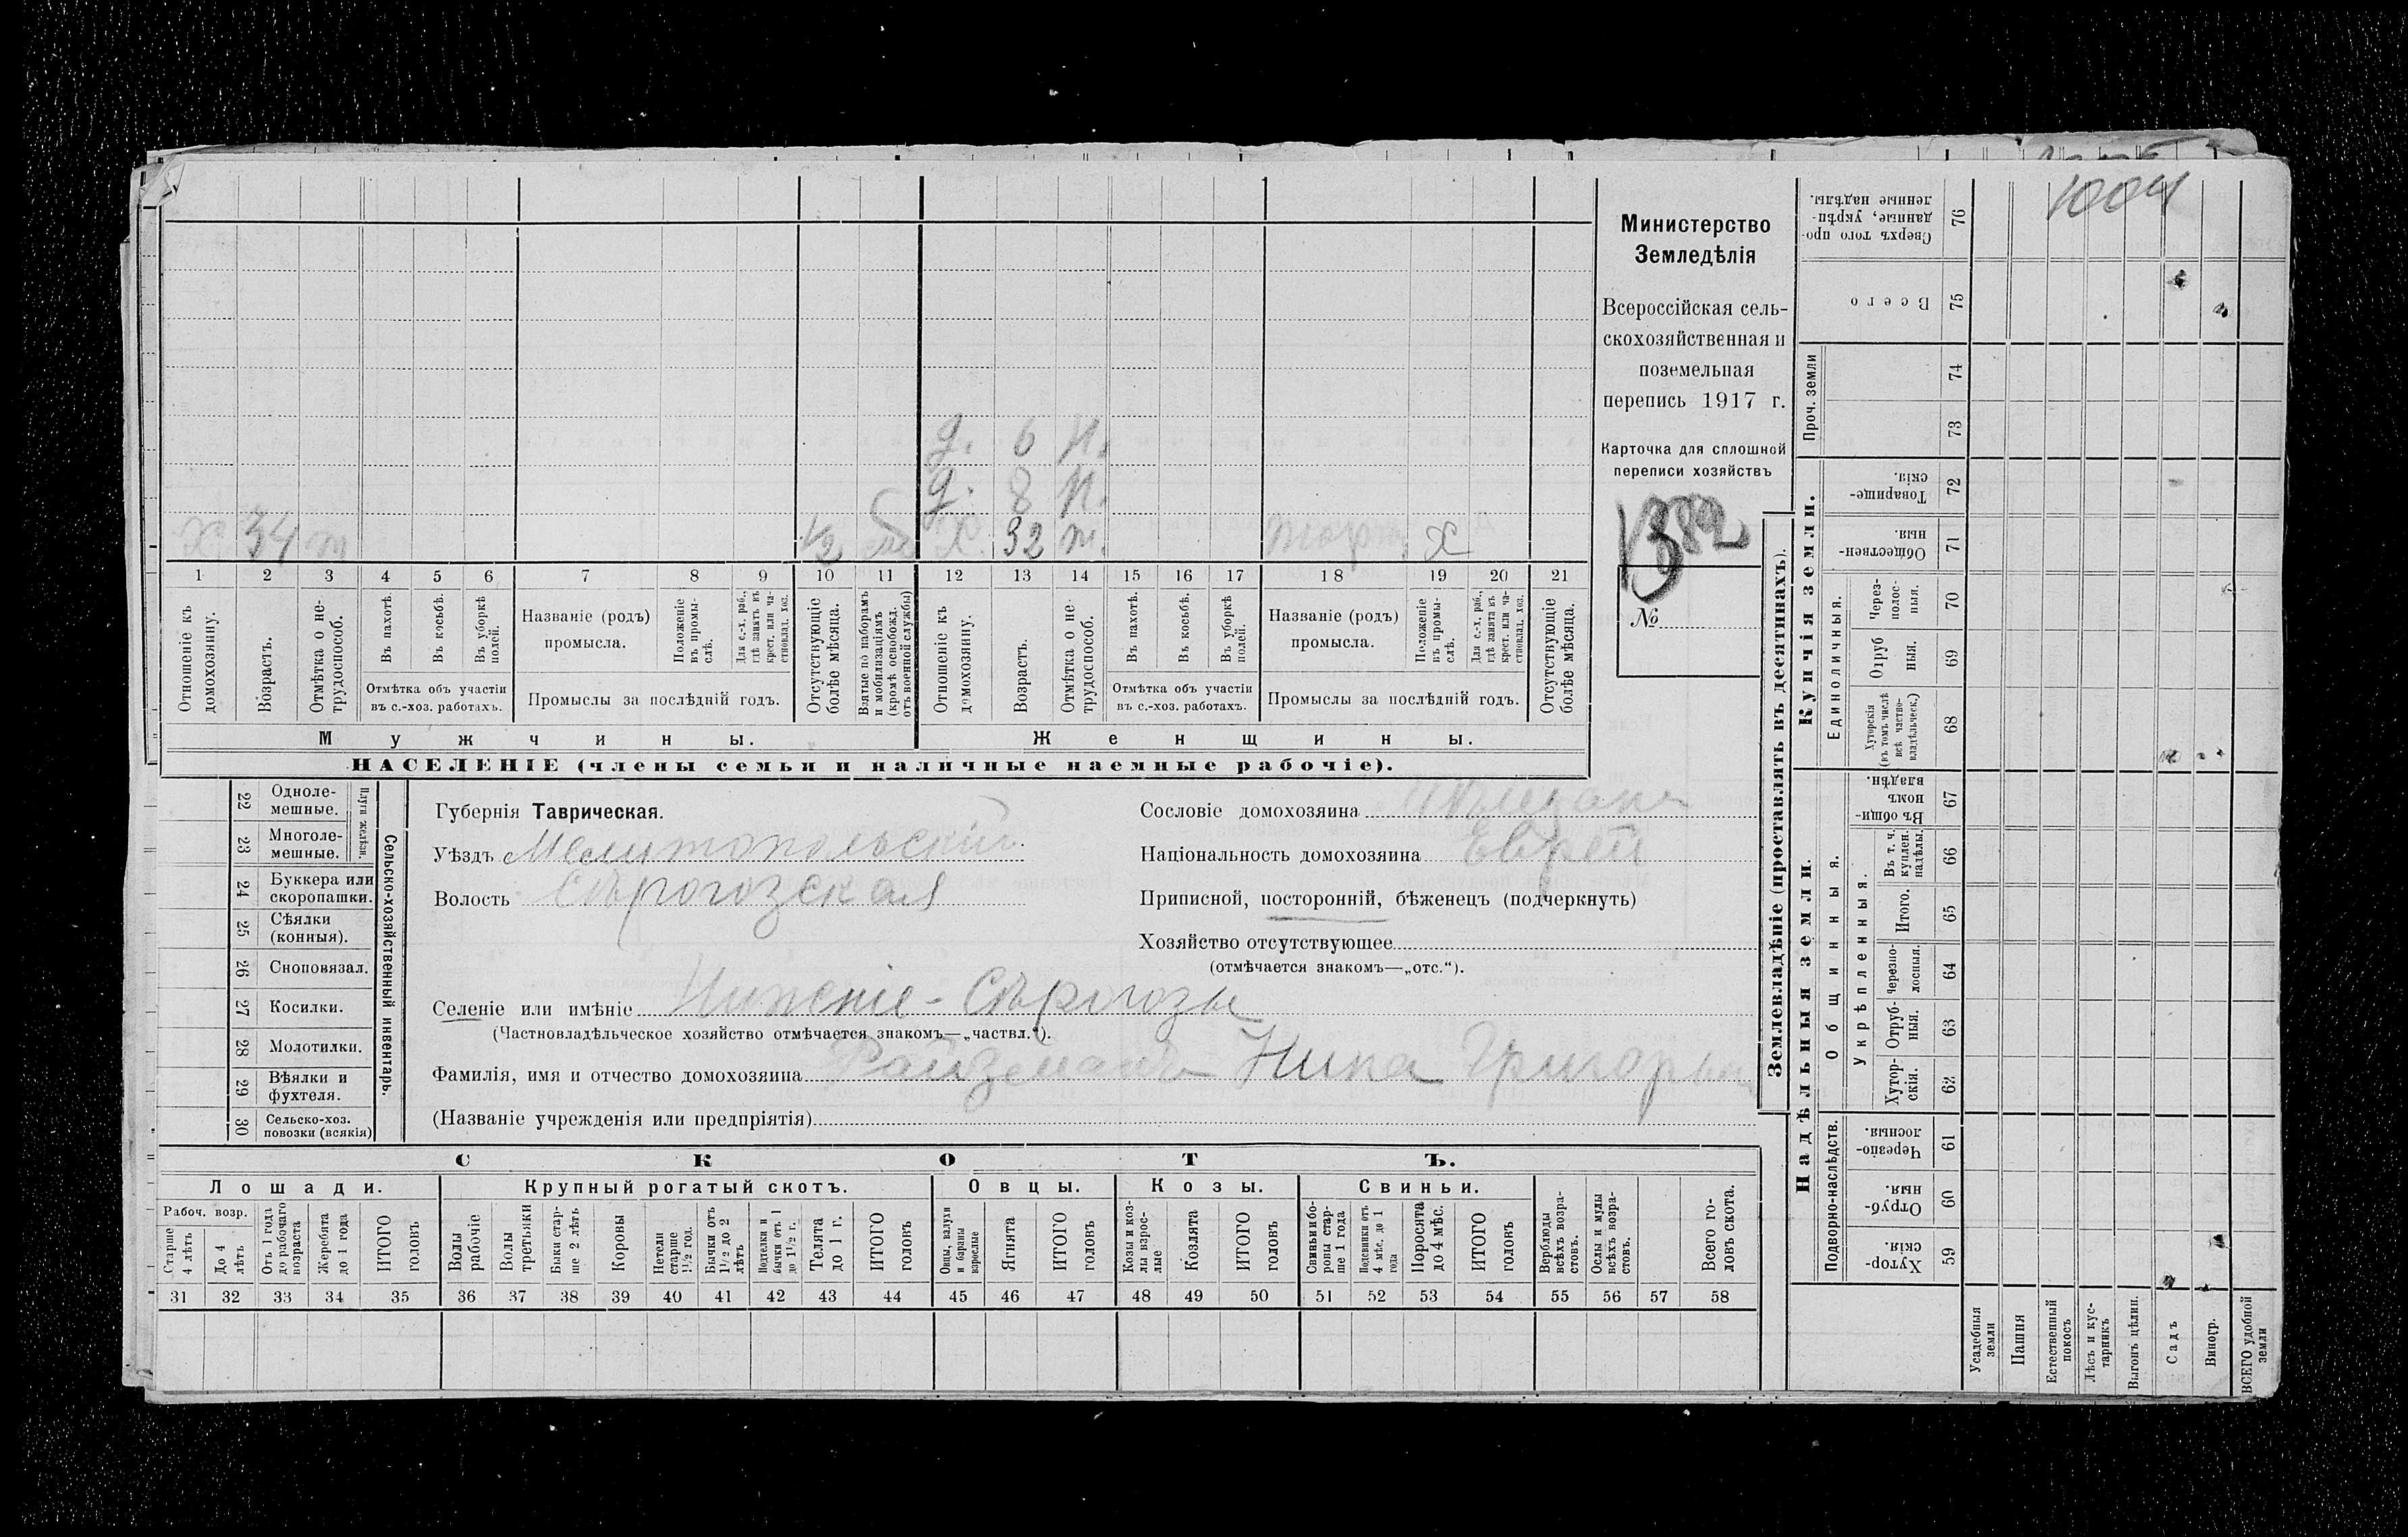 1004
Министерство
Земледѣлія
Всероссійская сель-
скохозяйственная и
поземельная
перепись 1917 г.
Карточка для сплошной
переписи хозяйствъ
1382
№
д. 6 н.
д. 8 н.
х. 34 т 1/2 х. 32 т. х
1 2 3 4 5 6 7 8 9 10 11 12 13 14 15 16 17 18 19 20 21
Отношеніе къ домохозяину.
Возрастъ.
Отмѣтка о не-трудоспособ.
Въ пахотѣ.
Въ косьбѣ.
Въ уборкѣ полей.
Отмѣтка объ участіи
въ с.-хоз. работахъ.
Названіе (родъ)
промысла.
Положеніе въ промы-слѣ.
Для с.-х. раб., гдѣ занятъ въ крест. или ча-стновлад. хоз.
Промыслы за послѣдній годъ.
Отсутствующіе болѣе мѣсяца.
Взятые по наборамъ и мобилизаціямъ (кромѣ освобожд. отъ военной службы)
Отношеніе къ домохозяину.
Возрастъ.
Отмѣтка о не-трудоспособ.
Въ пахотѣ.
Въ косьбѣ.
Въ уборкѣ полей.
Отмѣтка объ участіи
въ с.-хоз. работахъ.
Названіе (родъ)
промысла.
Положеніе въ промы-слѣ.
Для с.-х. раб., гдѣ занята въ крест. или ча-стновлад. хоз.
Промыслы за послѣдній годъ.
Отсутствующіе болѣе мѣсяца.
Мужчины.
Женщины.
НАСЕЛЕНІЕ (члены семьи и наличные наемные рабочіе).
22 Одноле-мешные.
23 Многоле-мешные.
Плуги желѣзн.
24 Буккера или скоропашки.
25 Сѣялки (конныя).
26 Сноповязал.
27 Косилки.
28 Молотилки.
29 Вѣялки и фухтеля.
30 Сельско-хоз. повозки (всякія)
Сельско-хозяйственный инвентарь.
Губернія Таврическая.
Уѣздъ Мелитопольскій
Волость Сѣрогозская
Сословіе домохозяина
Національность домохозяина Еврей
Приписной, посторонній, бѣженецъ (подчеркнуть)
Хозяйство отсутствующее
(отмѣчается знакомъ—„отс.“).
Селеніе или имѣніе Нижніе-Сѣрогозы
(Частновладѣльческое хозяйство отмѣчается знакомъ—„частвл.“).
Фамилія, имя и отчество домохозяина Райзманъ
(Названіе учрежденія или предпріятія)
СКОТЪ.
Лошади.
Крупный рогатый скотъ.
Овцы.
Козы.
Свиньи.
Рабоч. возр.
Старше 4 лѣтъ
До 4 лѣтъ
Отъ 1 года до рабочаго возраста
Жеребята до 1 года
ИТОГО головъ
Волы рабочіе
Волы третьяки
Быки стар-ше 2 лѣтъ
Коровы
Нетели старше 1½ год.
Бычки отъ 1½ до 2 лѣтъ
Подтелки и бычки отъ 1 до 1½ г.
Телята до 1 г.
ИТОГО головъ
Овцы, валухи и бараны взрослые
Ягнята
ИТОГО головъ
Козы и коз-лы взрос-лые
Козлята
ИТОГО головъ
Свиньи и бо-ровы стар-ше 1 года
Подсвинки отъ 4 мѣс. до 1 года
Поросята до 4 мѣс.
ИТОГО головъ
Верблюды всѣхъ возра-стовъ.
Ослы и мулы всѣхъ возра-стовъ.
Всего го-ловъ скота.
31 32 33 34 35 36 37 38 39 40 41 42 43 44 45 46 47 48 49 50 51 52 53 54 55 56 57 58
Землевладѣніе (проставлять въ десятинахъ).
Сверхъ того про-данные, укрѣп-ленные надѣлы. 76
Всего 75
Проч. земли
74
73
Купчія земли.
Товарище-скія. 72
Обществен-ныя. 71
Единоличныя.
Через-полос-ныя. 70
Отруб ныя. 69
Хуторскія (въ томъ числѣ всѣ частно-владѣльческ.) 68
Надѣльныя земли.
Общинныя.
Въ общи-номъ владѣн. 67
Укрѣпленныя.
Въ т. ч. куплен. надѣлы. 66
Итого. 65
Черезпо-лосныя. 64
Отруб-ныя. 63
Хутор-скія. 62
Подворно-наслѣдств.
Черезпо-лосныя. 61
Отруб-ныя. 60
Хутор-скія. 59
Усадебныя земли
Пашня
Естественный покосъ
Лѣсъ и кус-тарникъ
Выгонъ цѣлин.
Садъ
Виногр.
ВСЕГО удобной земли